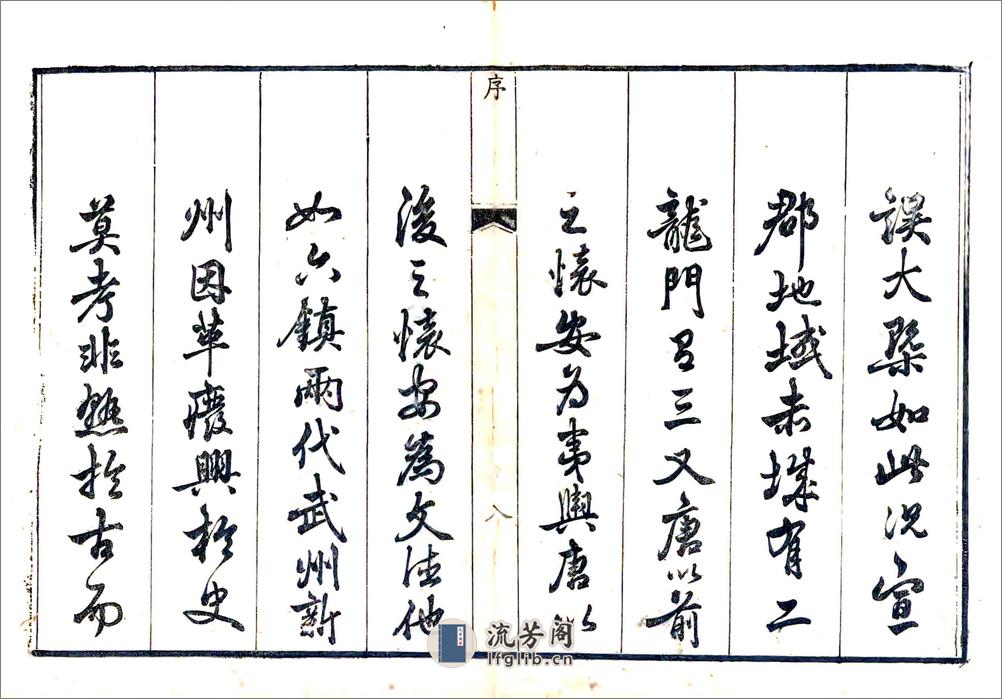 誤大槩如此況宣
郡地域赤城有二
龍門且三又唐以前
之懷安為夷輿唐以
序
八
後之懷安為文德他
如六鎮兩代武州新
州因革廢興於史
莫考非熟於古而
流芳閣
lfglib.cn